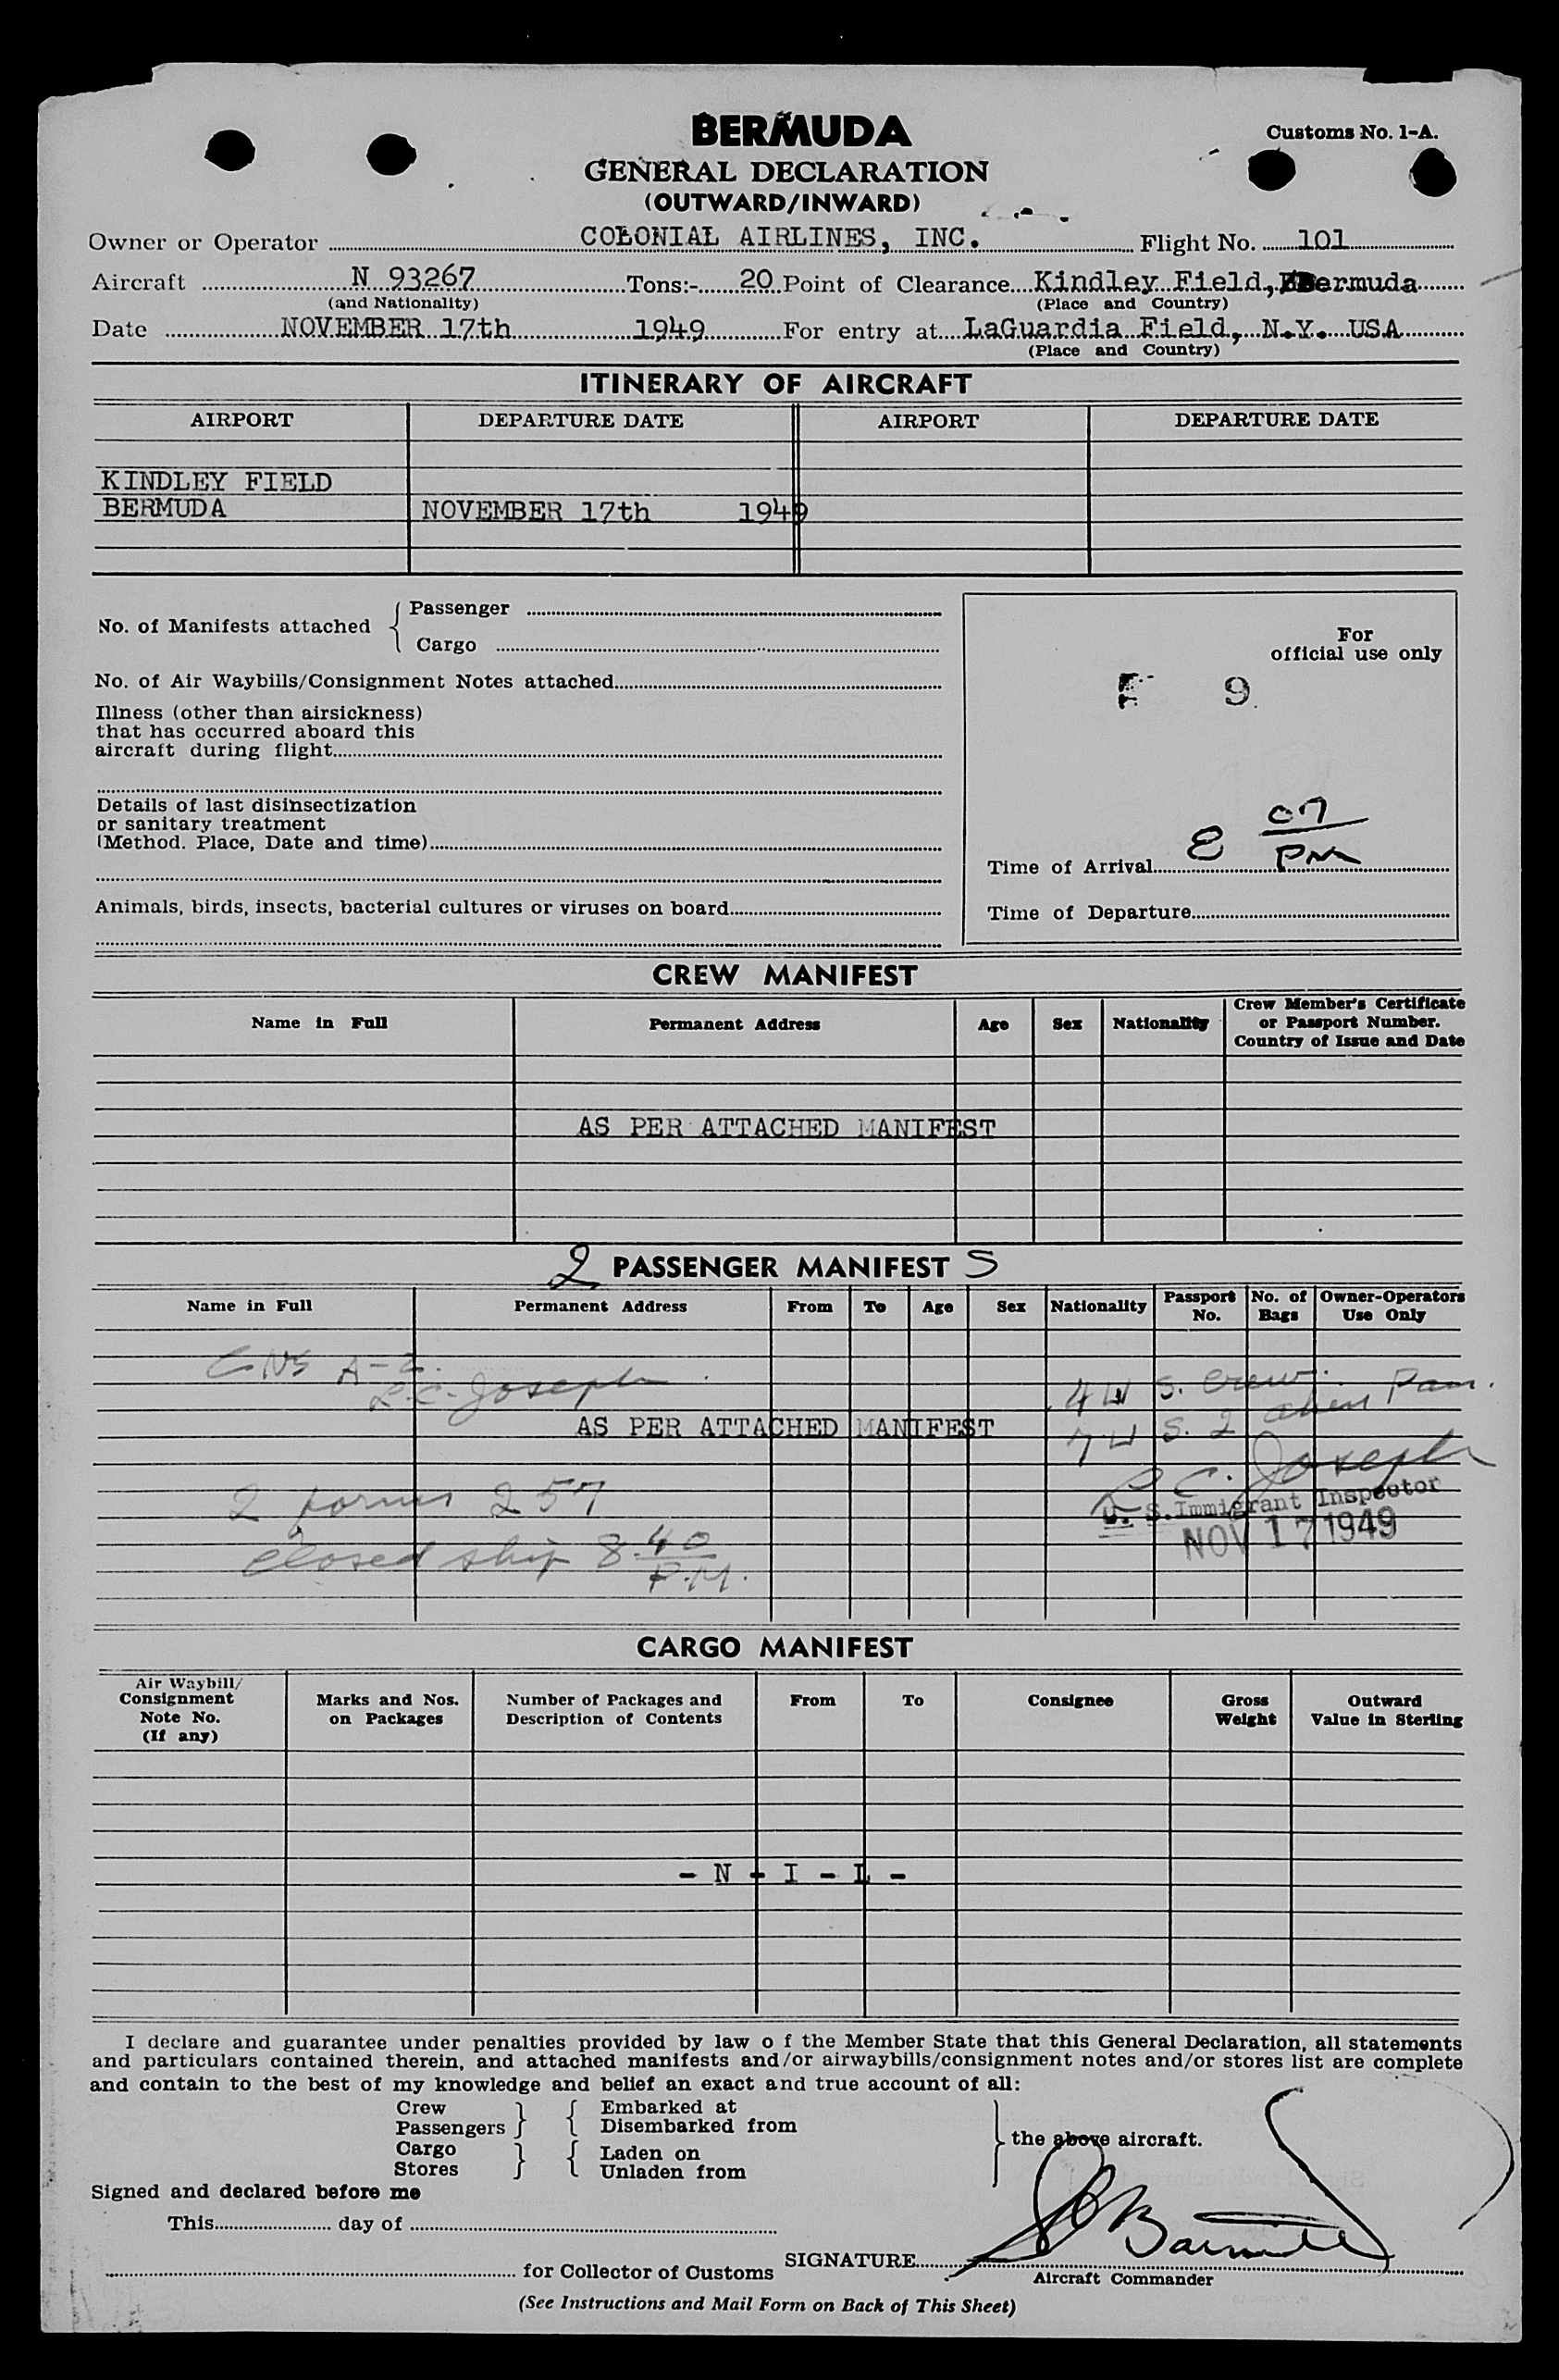 BERMUDA
Customs No. 1-A.
GENERAL DECLARATION
(OUTWARD/INWARD)
Owner or Operator COLONIAL AIRLINES, INC. Flight No. 101
Aircraft N 93267 Tons:- 20 Point of Clearance Kindley Field, Bermuda
(and Nationality) (Place and Country)
Date NOVEMBER 17th 1949 For entry at LaGuardia Field, N.Y. USA
(Place and Country)
ITINERARY OF AIRCRAFT
AIRPORT DEPARTURE DATE AIRPORT DEPARTURE DATE
KINDLEY FIELD
BERMUDA NOVEMBER 17th 1949
No. of Manifests attached { Passenger
Cargo
For
official use only
No. of Air Waybills/Consignment Notes attached
9
Illness (other than airsickness)
that has occurred aboard this
aircraft during flight
Details of last disinsectization
or sanitary treatment
(Method. Place, Date and time)
Time of Arrival 8 07 PM
Animals, birds, insects, bacterial cultures or viruses on board
Time of Departure
CREW MANIFEST
Name in Full Permanent Address Age Sex Nationality Crew Member's Certificate
or Passport Number.
Country of Issue and Date
AS PER ATTACHED MANIFEST
2 PASSENGER MANIFEST S
Name in Full Permanent Address From To Age Sex Nationality Passport No. No. of Bags Owner-Operators Use Only
R.C. Joseph
4 U S. Crew.
AS PER ATTACHED MANIFEST
7 U S. 2 alien Pass.
R C. Joseph
2 forms 257
U. S. Immigrant Inspector
NOV 17 1949
closed ship 8 40 P.M.
CARGO MANIFEST
Air Waybill/
Consignment
Note No.
(If any)
Marks and Nos.
on Packages
Number of Packages and
Description of Contents
From To Consignee
Gross
Weight
Outward
Value in Sterling
- N - I - L -
I declare and guarantee under penalties provided by law o f the Member State that this General Declaration, all statements
and particulars contained therein, and attached manifests and/or airwaybills/consignment notes and/or stores list are complete
and contain to the best of my knowledge and belief an exact and true account of all:
Crew } { Embarked at
Passengers Disembarked from
} the above aircraft.
Cargo } { Laden on
Stores Unladen from
Signed and declared before me
This day of
for Collector of Customs SIGNATURE
Aircraft Commander
(See Instructions and Mail Form on Back of This Sheet)